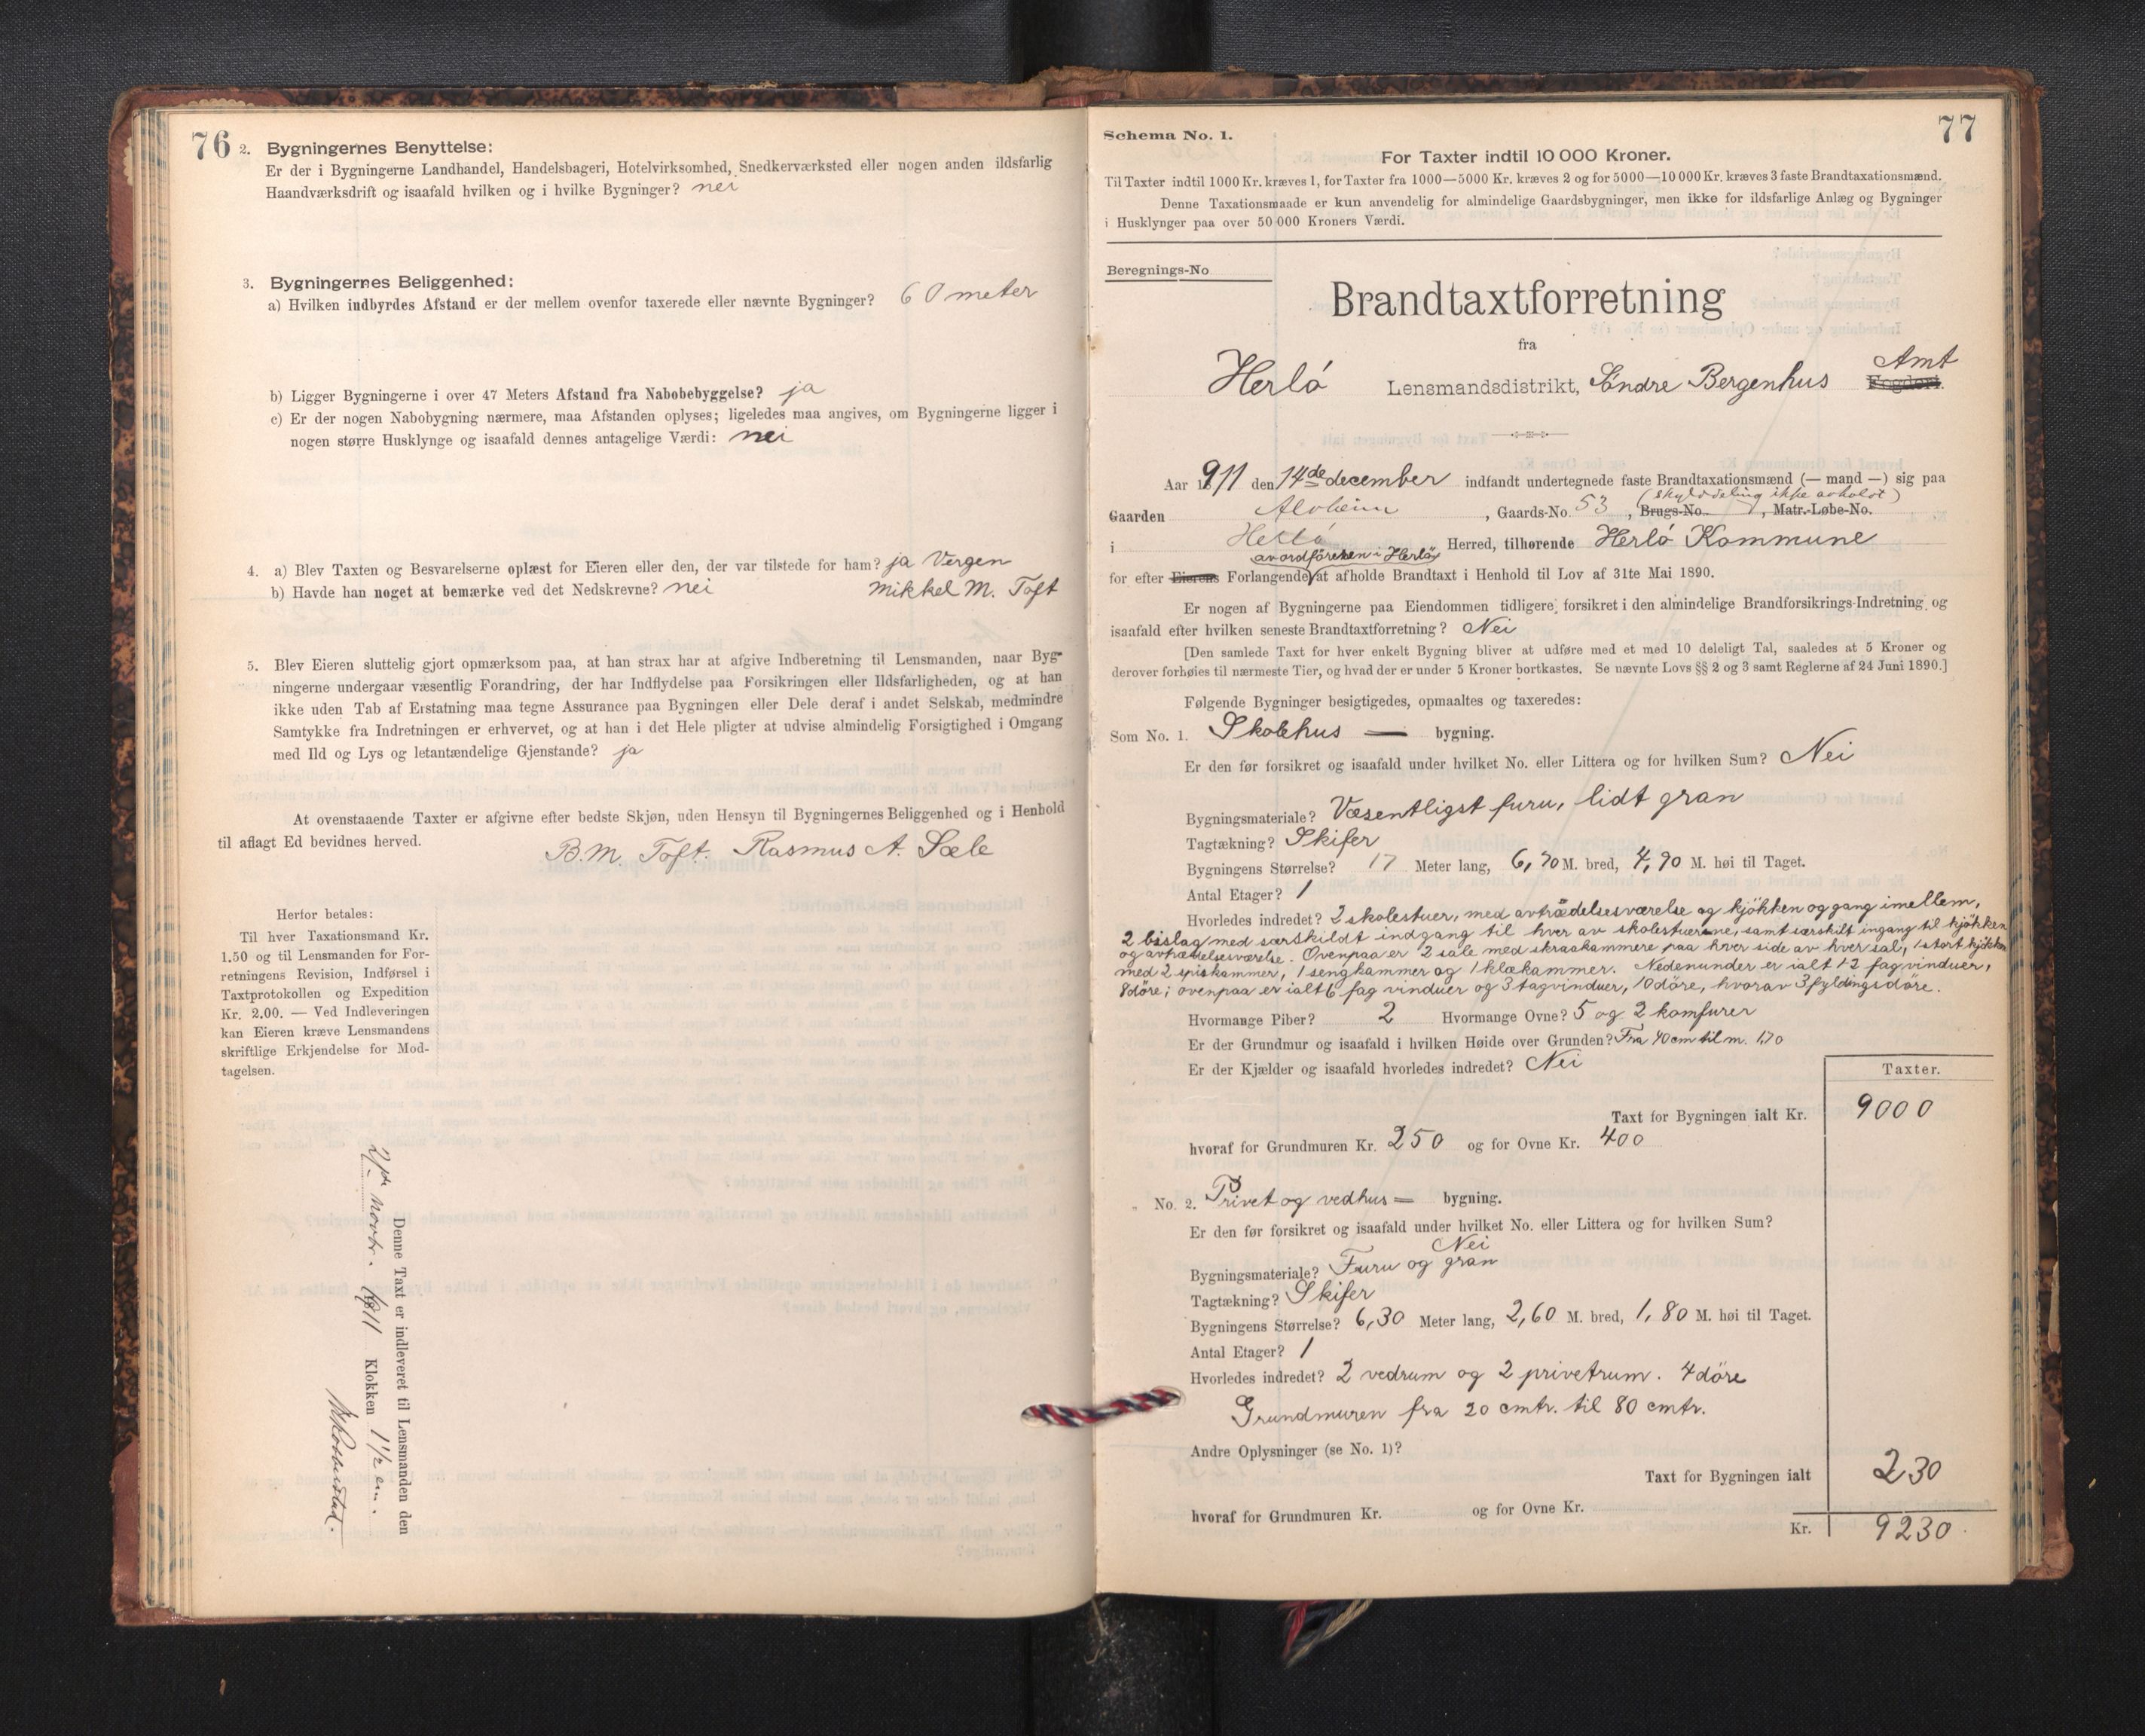 76
2. Bygningernes Benyttelse:
Er der i Bygningerne Landhandel, Handelsbageri, Hotelvirksomhed, Snedkerværksted eller nogen anden ildsfarlig
Haandværksdrift og isaafald hvilken og i hvilke Bygninger? nei
3. Bygningernes Beliggenhed:
a) Hvilken indbyrdes Afstand er der mellem ovenfor taxerede eller nævnte Bygninger? 60 meter
b) Ligger Bygningerne i over 47 Meters Afstand fra Nabobebyggelse? ja
c) Er der nogen Nabobygning nærmere, maa Afstanden oplyses; ligeledes maa angives, om Bygningerne ligger i
nogen større Husklynge og isaafald dennes antagelige Værdi: nei
4. a) Blev Taxten og Besvarelserne oplæst for Eieren eller den, der var tilstede for ham? ja Vergen
b) Havde han noget at bemærke ved det Nedskrevne? nei Mikkel M. Toft
5. Blev Eieren sluttelig gjort opmærksom paa, at han strax har at afgive Indberetning til Lensmanden, naar Byg-
ningerne undergaar væsentlig Forandring, der har Indflydelse paa Forsikringen eller Ildsfarligheden, og at han
ikke uden Tab af Erstatning maa tegne Assurance paa Bygningen eller Dele deraf i andet Selskab, medmindre
Samtykke fra Indretningen er erhvervet, og at han i det Hele pligter at udvise almindelig Forsigtighed i Omgang
med Ild og Lys og letantændelige Gjenstande? ja
At ovenstaaende Taxter er afgivne efter bedste Skjøn, uden Hensyn til Bygningernes Beliggenhed og i Henhold
til aflagt Ed bevidnes herved.
B. M. Toft. Rasmus A. Sæle
Herfor betales:
Til hver Taxationsmand Kr.
1.50 og til Lensmanden for For-
retningens Revision, Indførsel i
Taxtprotokollen og Expedition
Kr. 2.00. — Ved Indleveringen
kan Eieren kræve Lensmandens
skriftlige Erkjendelse for Mod-
tagelsen.
Denne Taxt er indleveret til Lensmanden den
novbr. 1911 Klokken 1 1/2 em.
77
Schema No. 1.
For Taxter indtil 10 000 Kroner.
Til Taxter indtil 1000 Kr. kræves 1, for Taxter fra 1000—5000 Kr. kræves 2 og for 5000—10 000 Kr. kræves 3 faste Brandtaxationsmænd.
Denne Taxationsmaade er kun anvendelig for almindelige Gaardsbygninger, men ikke for ildsfarlige Anlæg og Bygninger
i Husklynger paa over 50 000 Kroners Værdi.
Beregnings-No
Brandtaxtforretning
fra
Amt
Herlö Lensmandsdistrikt, Söndre Bergenhus Fogderi.
Aar 1911 den 14de december indfandt undertegnede faste Brandtaxationsmænd (— mand —) sig paa
(skylddeling ikke avholdt)
Gaarden Alvheim, Gaards-No. 53, Brugs-No., Matr.-Løbe-No.
i Herlö Herred, tilhørende Herlö Kommune
av ordföreren i Herlö
for efter Eierens Forlangende at afholde Brandtaxt i Henhold til Lov af 31te Mai 1890.
Er nogen af Bygningerne paa Eiendommen tidligere forsikret i den almindelige Brandforsikrings-Indretning og
isaafald efter hvilken seneste Brandtaxtforretning? Nei
[Den samlede Taxt for hver enkelt Bygning bliver at udføre med et med 10 deleligt Tal, saaledes at 5 Kroner og
derover forhøies til nærmeste Tier, og hvad der er under 5 Kroner bortkastes. Se nævnte Lovs §§ 2 og 3 samt Reglerne af 24 Juni 1890.]
Følgende Bygninger besigtigedes, opmaaltes og taxeredes:
Som No. 1. Skolehus — bygning.
Er den før forsikret og isaafald under hvilket No. eller Littera og for hvilken Sum? Nei
Bygningsmateriale? Væsentligst furu, lidt gran
Tagtækning? Skifer
Bygningens Størrelse? 17 Meter lang, 6,70 M. bred, 4,90 M. høi til Taget.
Antal Etager? 1
Hvorledes indredet? 2 skolestuer, med avtrædelsesværelse og kjökken og gang imellem,
2 bislag med særskildt indgang til hver av skolestuerne, samt særskilt ingang til kjökken
og avtrædelsesværelse. Ovenpaa er 2 sale med skraakammere paa hver side av hver sal, 1 stort kjökken
med 2 spiskammer, 1 sengkammer og 1 klækammer. Nedenunder er ialt 12 fag vinduer,
8 döre; ovenpaa er ialt 6 fag vinduer og 3 tagvinduer, 10 döre, hvorav 3 fyldingsdöre.
Hvormange Piber? 2 Hvormange Ovne? 5 og 2 komfurer
Er der Grundmur og isaafald i hvilken Høide over Grunden? Fra 40 cm til m. 1,70
Er der Kjælder og isaafald hvorledes indredet? Nei
Taxter.
Taxt for Bygningen ialt Kr. 9000
hvoraf for Grundmuren Kr. 250 og for Ovne Kr. 400
No. 2. Privet og vedhus — bygning.
Er den før forsikret og isaafald under hvilket No. eller Littera og for hvilken Sum?
Nei
Bygningsmateriale? Furu og gran
Tagtækning? Skifer
Bygningens Størrelse? 6,30 Meter lang, 2,60 M. bred, 1,80 M. høi til Taget.
Antal Etager? 1
Hvorledes indredet? 2 vedrum og 2 privetrum. 4 döre
Grundmuren fra 20 cmtr. til 80 cmtr.
Andre Oplysninger (se No. 1)?
Taxt for Bygningen ialt 230
hvoraf for Grundmuren Kr. og for Ovne Kr.
Kr. 9230